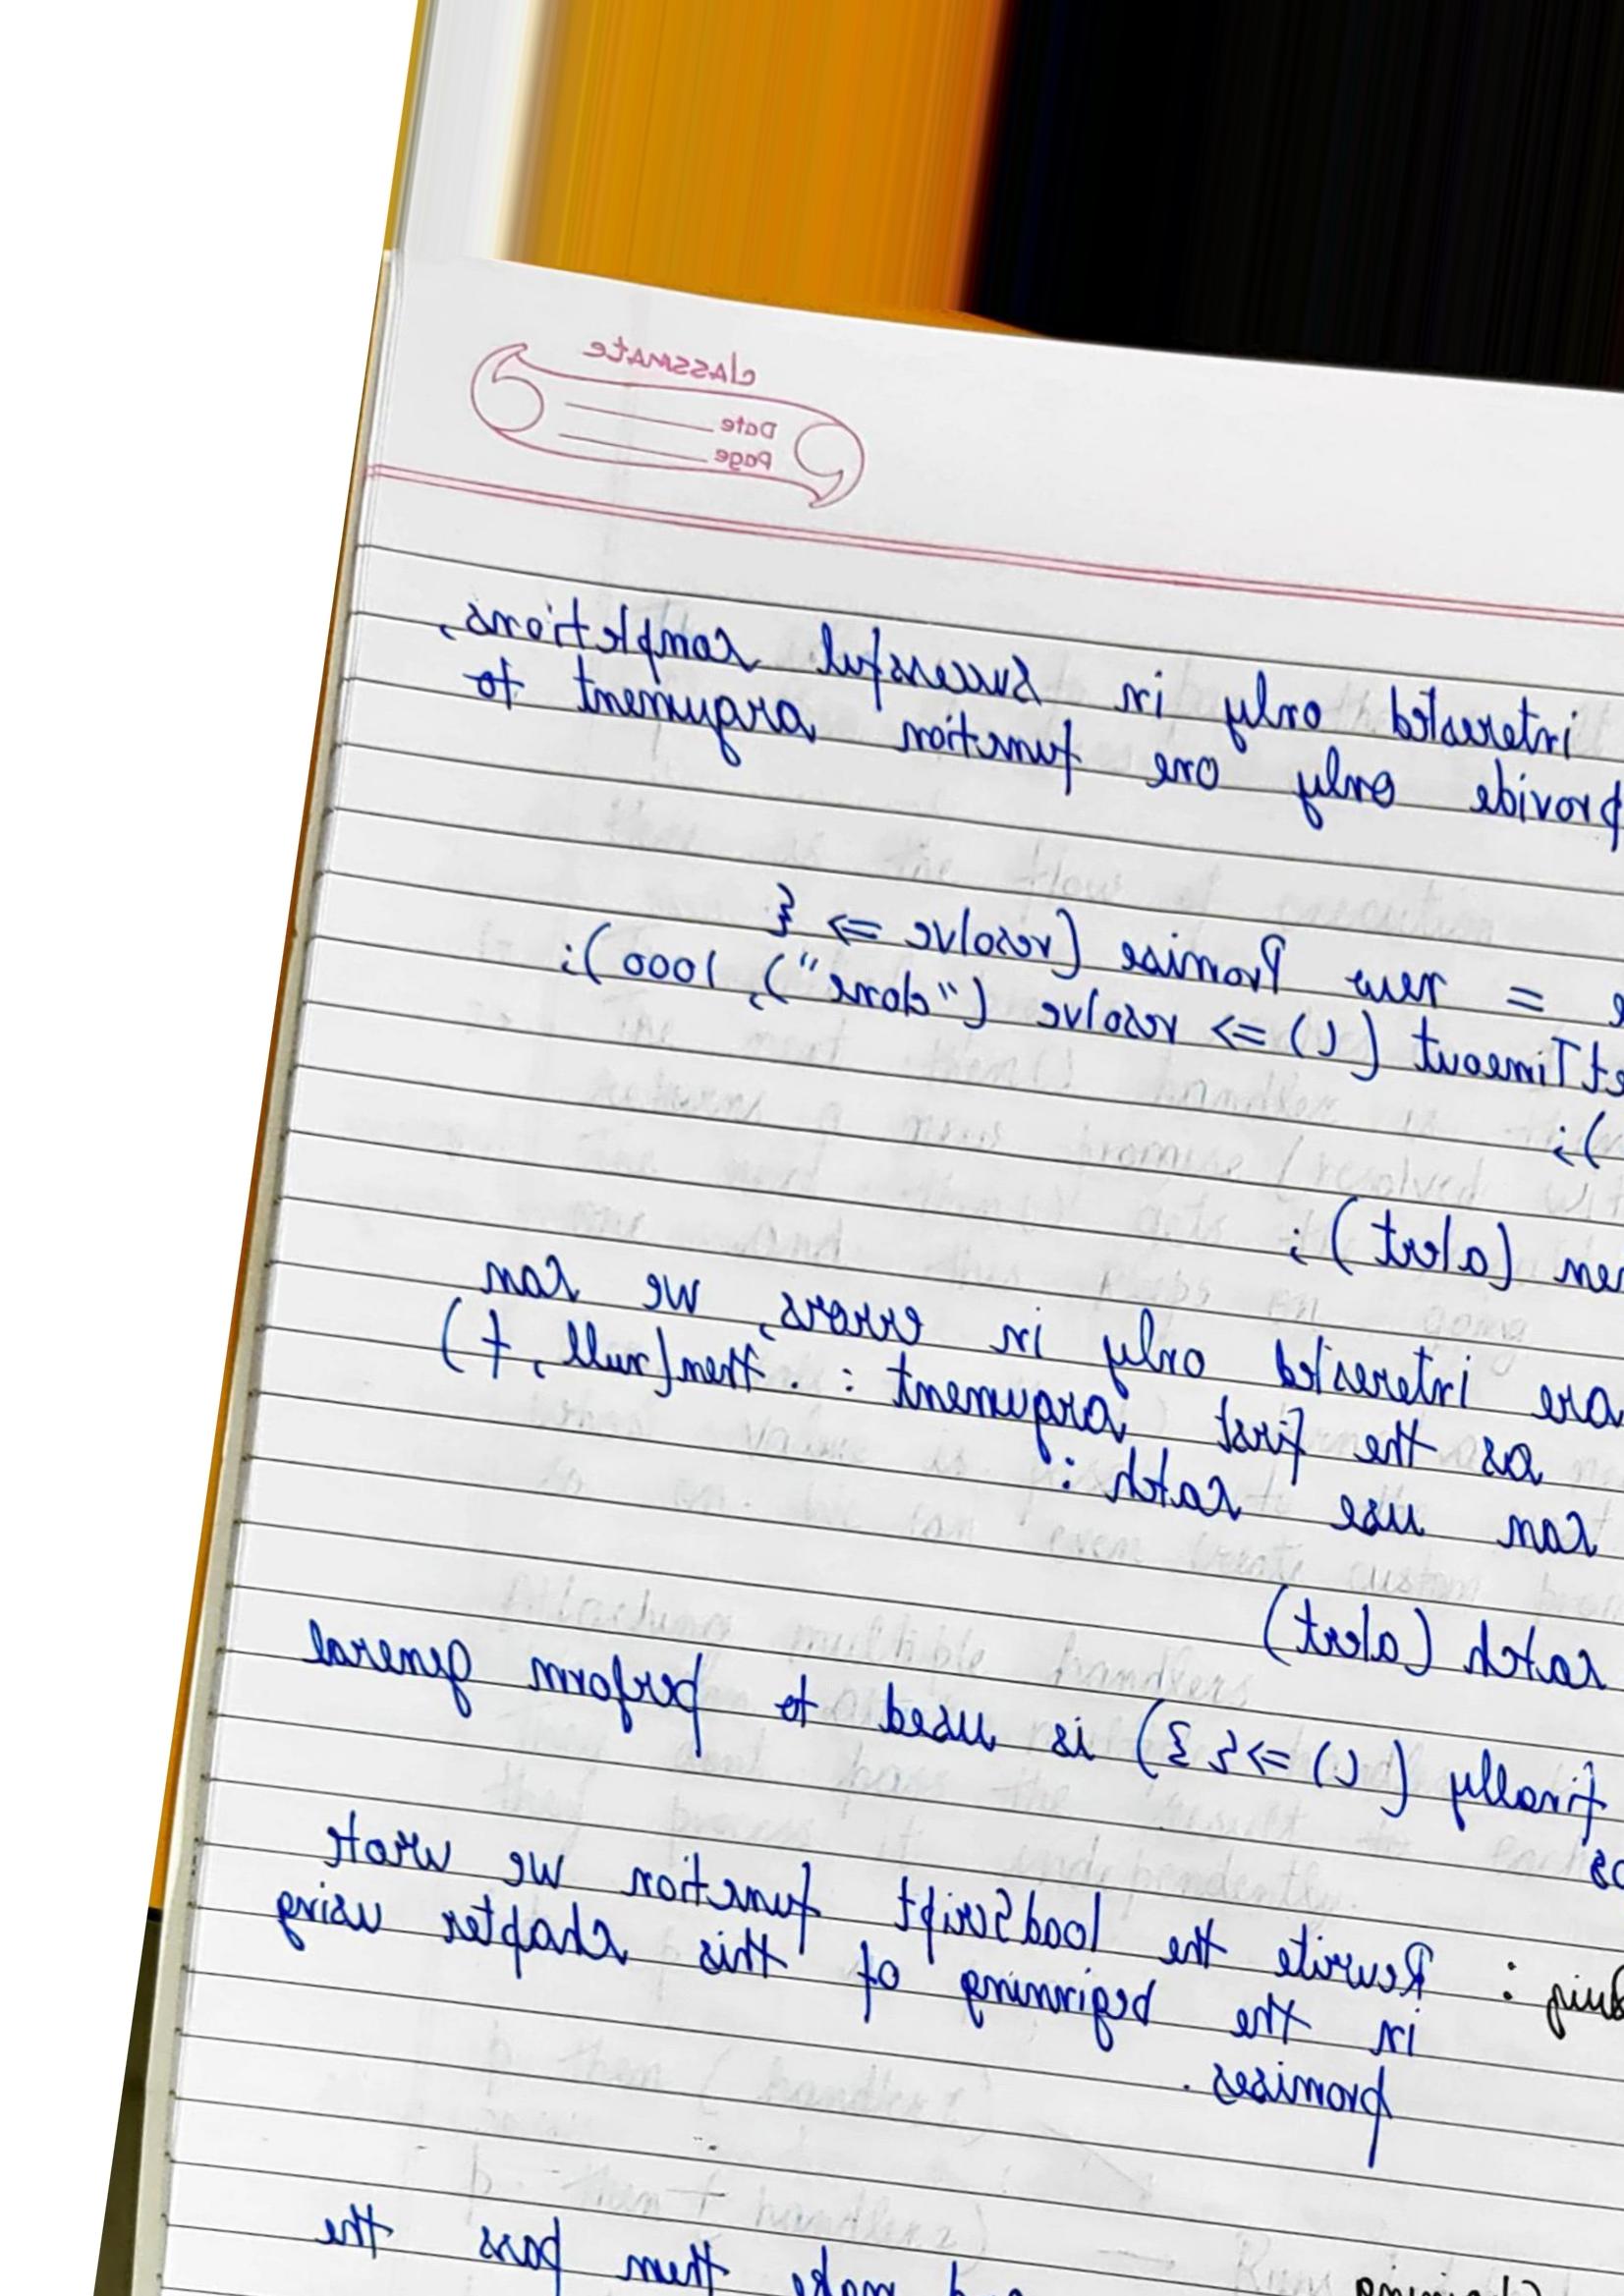 classmate
Date
Page
interested only in successful completions,
provide only one function argument to
= new Promise (resolve => {
etTimeout (() => resolve ("done"), 1000);
);
en (alert);
are interested only in errors, we can
as the first argument : .then(null, f)
can use catch :
catch (alert)
finally (() => { }) is used to perform general
Rewrite the loadScript function we wrote
in the beginning of this chapter using
promises.
make them pass the